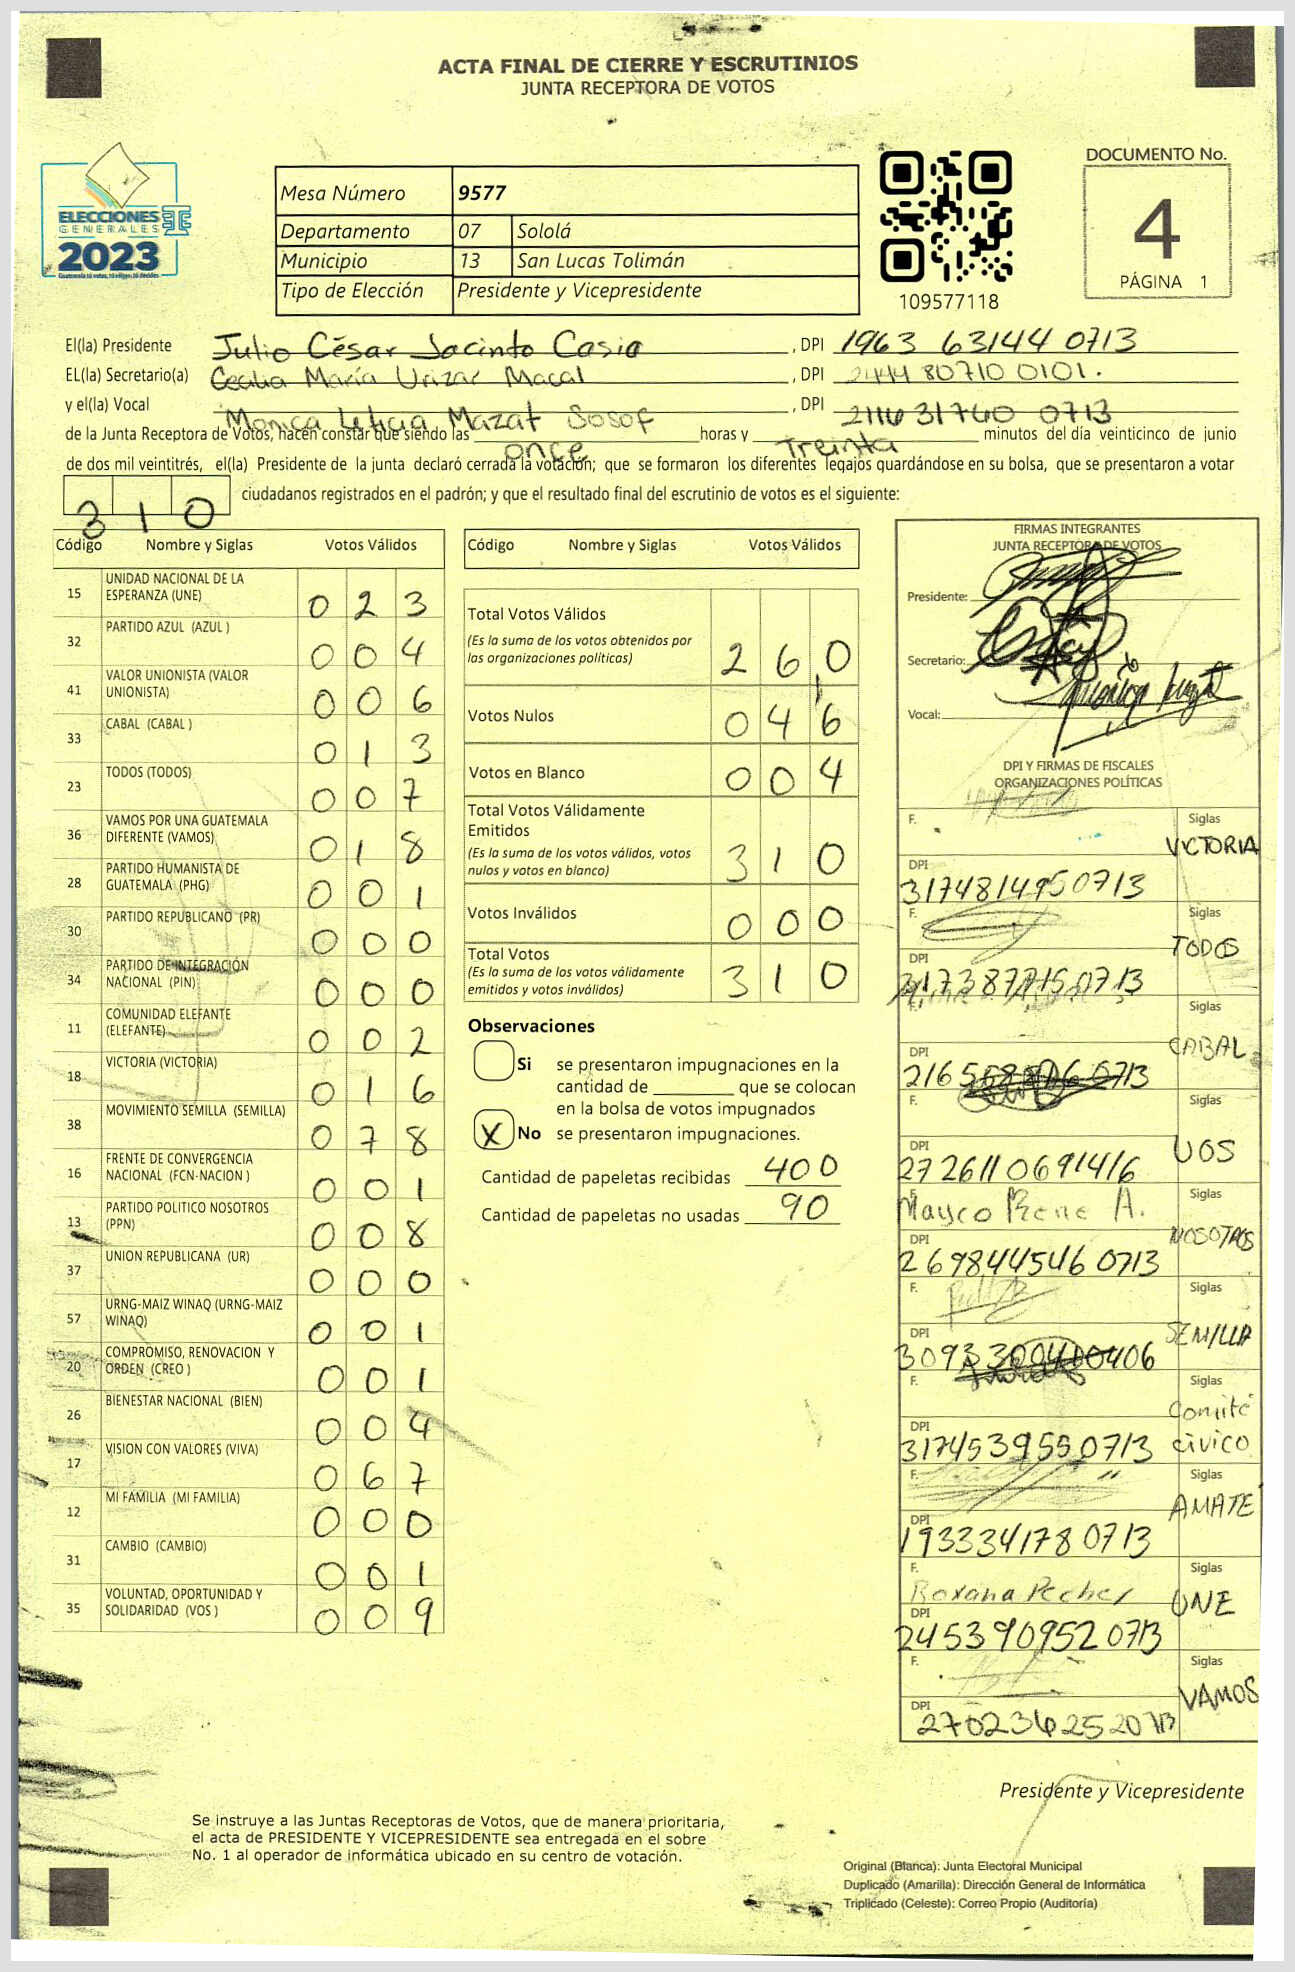 ACTA FINAL DE CIERRE Y ESCRUTINIOS
JUNTA RECEPTORA DE VOTOS
ELECCIONES
GENERALES
2023
Mesa Número 9577
Departamento 07 Sololá
Municipio 13 San Lucas Tolimán
Tipo de Elección Presidente y Vicepresidente
109577118
DOCUMENTO No.
4
PÁGINA 1
El(la) Presidente Julio César Jacinto Casia, DPI 1963 63144 0713
EL(la) Secretario(a) Cecilia María Urizar Macal, DPI 2444 80710 0101.
y el(la) Vocal Monica Leticia Mazat Sosof, DPI 2116 31740 0713
de la Junta Receptora de Votos, hacen constar que siendo las once horas y Treinta minutos del día veinticinco de junio
de dos mil veintitrés, el(la) Presidente de la junta declaró cerrada la votación; que se formaron los diferentes legajos guardándose en su bolsa, que se presentaron a votar
310 ciudadanos registrados en el padrón; y que el resultado final del escrutinio de votos es el siguiente:
Código Nombre y Siglas Votos Válidos
15 UNIDAD NACIONAL DE LA ESPERANZA (UNE) 0 2 3
32 PARTIDO AZUL (AZUL ) 0 0 4
41 VALOR UNIONISTA (VALOR UNIONISTA) 0 0 6
33 CABAL (CABAL ) 0 1 3
23 TODOS (TODOS) 0 0 7
36 VAMOS POR UNA GUATEMALA DIFERENTE (VAMOS) 0 1 8
28 PARTIDO HUMANISTA DE GUATEMALA (PHG) 0 0 1
30 PARTIDO REPUBLICANO (PR) 0 0 0
34 PARTIDO DE INTEGRACIÓN NACIONAL (PIN) 0 0 0
11 COMUNIDAD ELEFANTE (ELEFANTE) 0 0 2
18 VICTORIA (VICTORIA) 0 1 6
38 MOVIMIENTO SEMILLA (SEMILLA) 0 7 8
16 FRENTE DE CONVERGENCIA NACIONAL (FCN-NACION ) 0 0 1
13 PARTIDO POLITICO NOSOTROS (PPN) 0 0 8
37 UNION REPUBLICANA (UR) 0 0 0
57 URNG-MAIZ WINAQ (URNG-MAIZ WINAQ) 0 0 1
20 COMPROMISO, RENOVACION Y ORDEN (CREO ) 0 0 1
26 BIENESTAR NACIONAL (BIEN) 0 0 4
17 VISION CON VALORES (VIVA) 0 6 7
12 MI FAMILIA (MI FAMILIA) 0 0 0
31 CAMBIO (CAMBIO) 0 0 1
35 VOLUNTAD, OPORTUNIDAD Y SOLIDARIDAD (VOS ) 0 0 9
Código Nombre y Siglas Votos Válidos
Total Votos Válidos 2 6 0
(Es la suma de los votos obtenidos por
las organizaciones politicas)
Votos Nulos 0 4 6
Votos en Blanco 0 0 4
Total Votos Válidamente
Emitidos 3 1 0
(Es la suma de los votos válidos, votos
nulos y votos en blanco)
Votos Inválidos 0 0 0
Total Votos 3 1 0
(Es la suma de los votos válidamente
emitidos y votos inválidos)
Observaciones
Si se presentaron impugnaciones en la
cantidad de ________ que se colocan
en la bolsa de votos impugnados
X No se presentaron impugnaciones.
Cantidad de papeletas recibidas 400
Cantidad de papeletas no usadas 90
FIRMAS INTEGRANTES
JUNTA RECEPTORA DE VOTOS
Presidente:
Secretario:
Vocal:
DPI Y FIRMAS DE FISCALES
ORGANIZACIONES POLÍTICAS
F. Siglas VICTORIA
DPI 3174814950713
F. Siglas TODOS
DPI
F. Siglas CABAL
DPI
F. Siglas UOS
DPI 2726110691416
F. Mayco Rene A. Siglas NOSOTROS
DPI 2698445460713
F. Siglas SEMILLA
DPI
F. Siglas Comité civico
DPI 3174539550713
F. Siglas AMATE
DPI 1933341780713
F. Roxana Pecher Siglas UNE
DPI 2453909520713
F. Siglas VAMOS
DPI 2702362520713
Presidente y Vicepresidente
Se instruye a las Juntas Receptoras de Votos, que de manera prioritaria,
el acta de PRESIDENTE Y VICEPRESIDENTE sea entregada en el sobre
No. 1 al operador de informática ubicado en su centro de votación.
Original (Blanca): Junta Electoral Municipal
Duplicado (Amarilla): Dirección General de Informática
Triplicado (Celeste): Correo Propio (Auditoría)